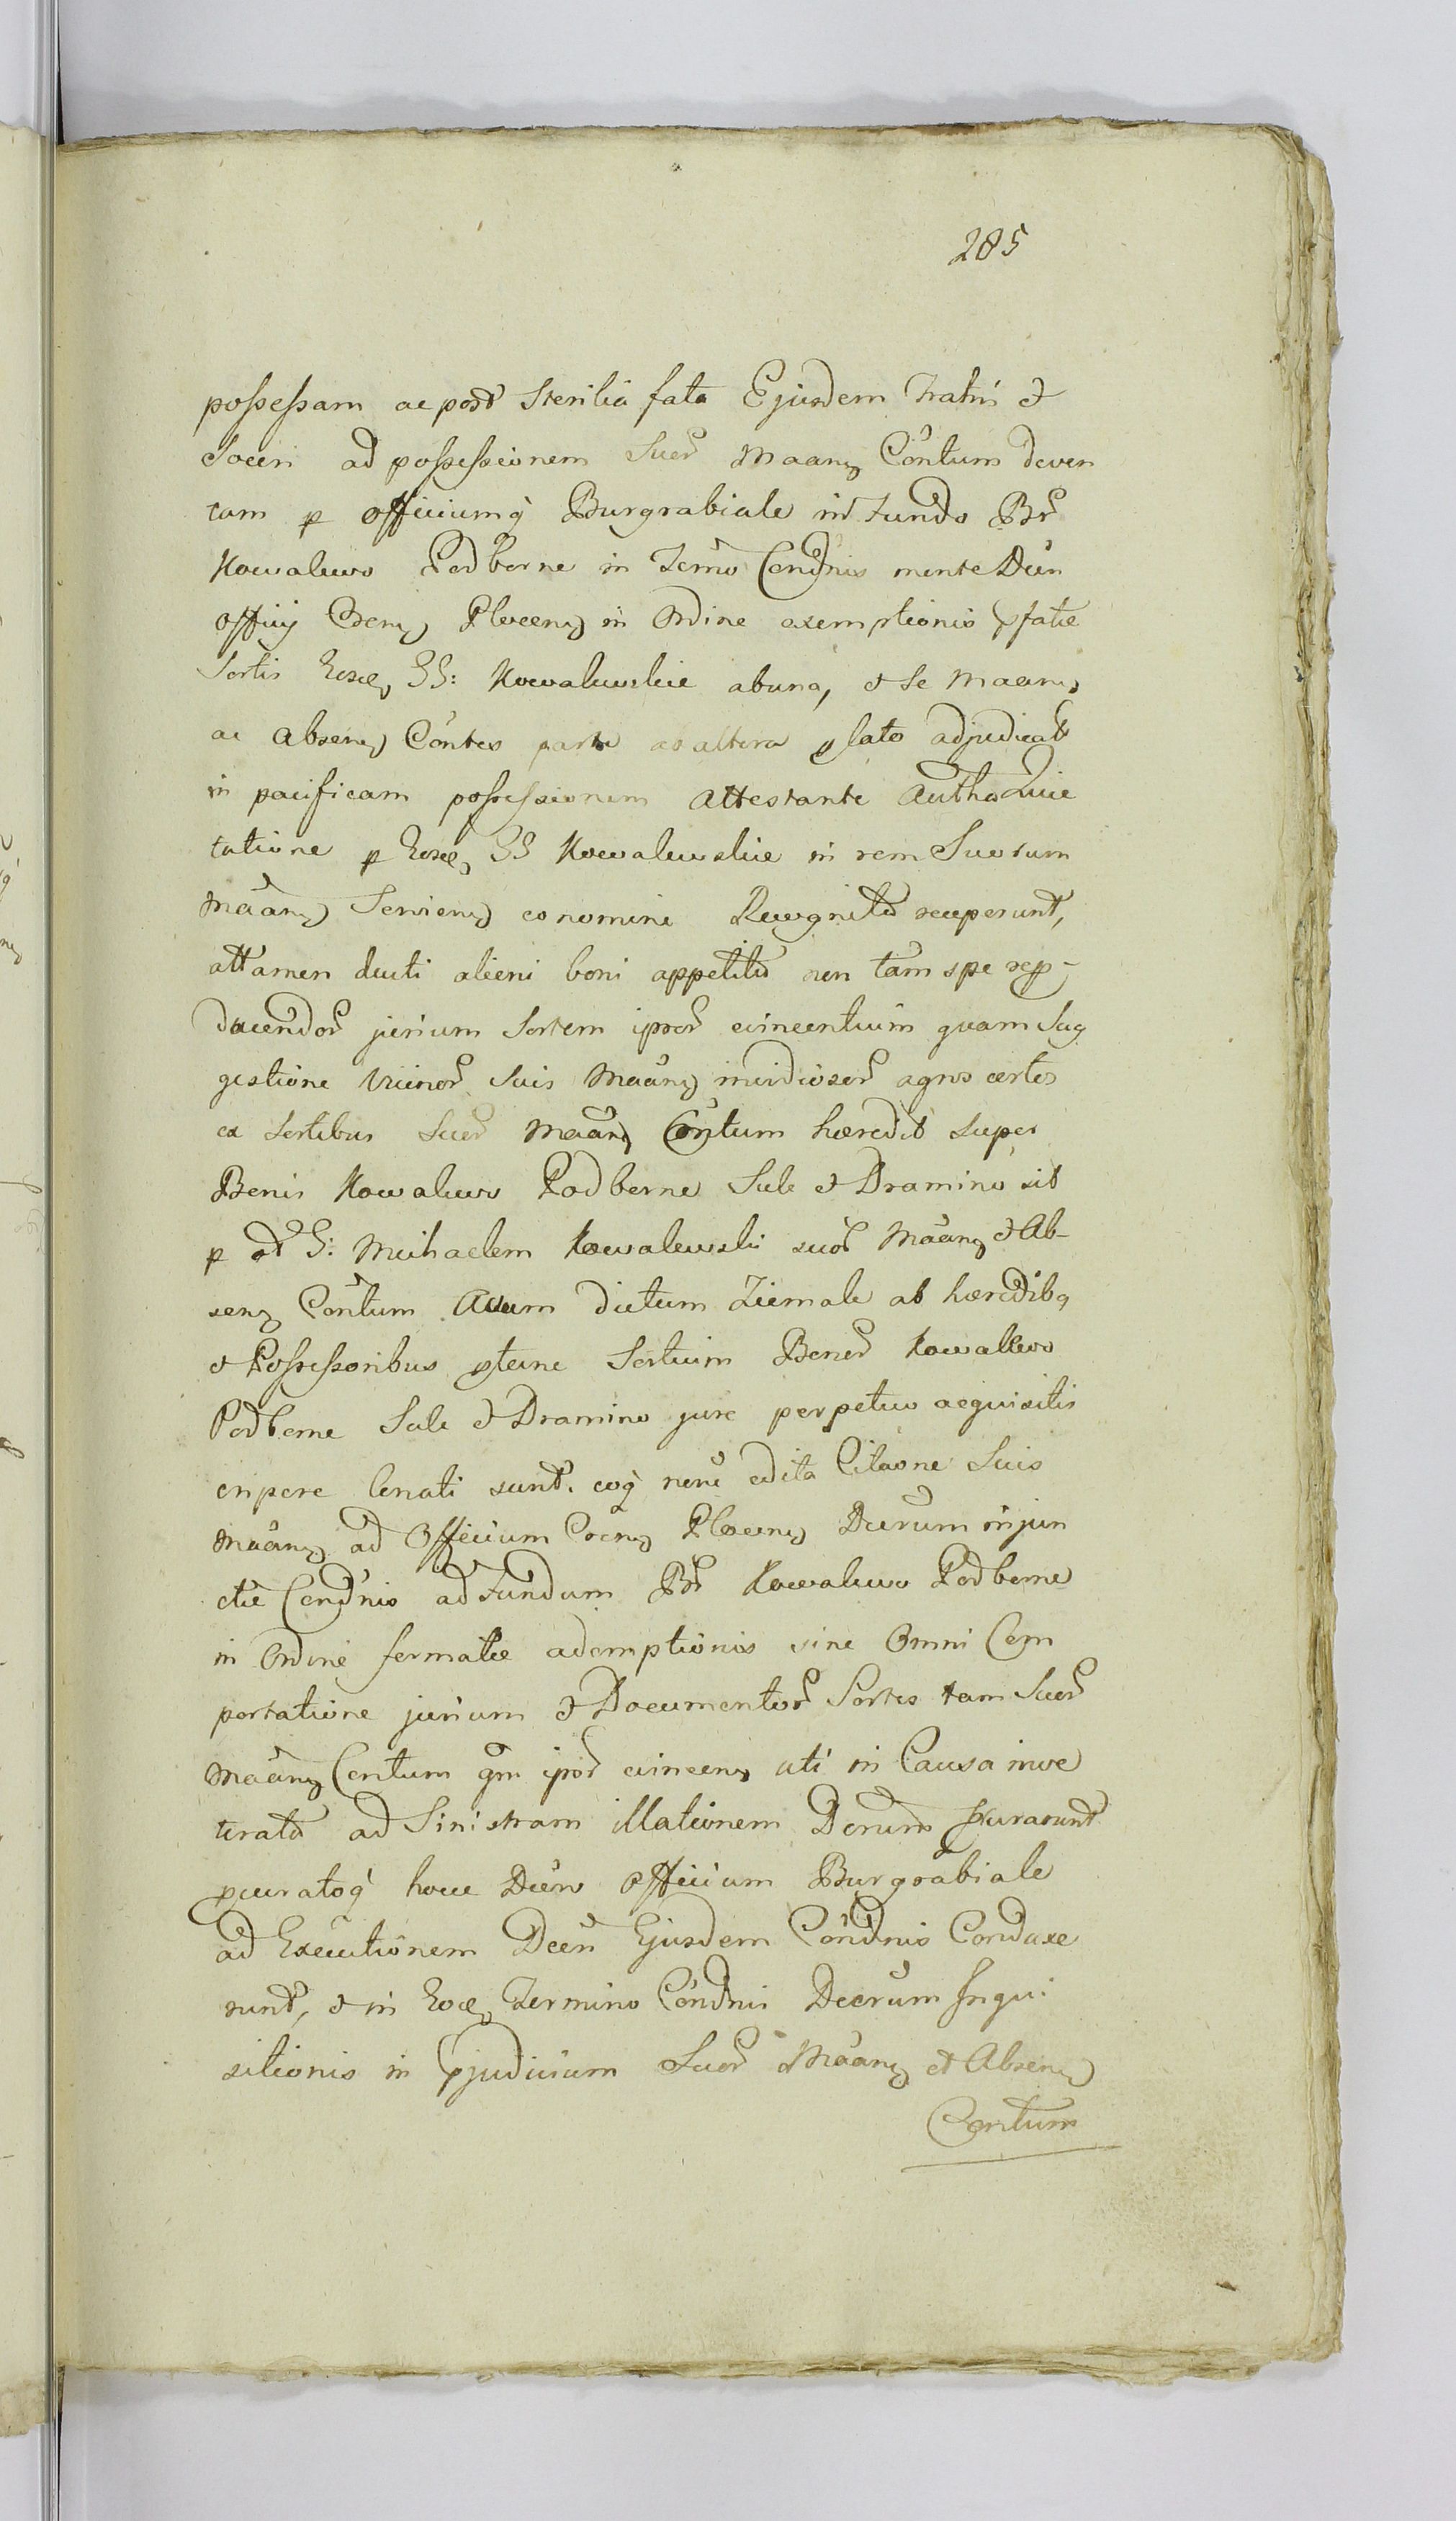 285
possessam ac post sterilia fata Ejusdem Fratris et
Soceri ad possessionem Suor Maanz Contum deven
tam p Officiumq Burgrabiale in Fundo Br
Kowalewo Podborne in Termo Condnis mente Decri
Officij Crens Plocens in Ordine exemptionis pfatæ
Sortis GG: Kowalewskie ab una, et se Maanz
ac absenz Contes parte ab altera plato adjudicat
in pacificam possessionem attestante Autha Quie
tatione p GG Kowalewskie in rem Suorum
Maanz Servienz eo nomine Recognita receperunt,
attamen ducti alieni boni appetitu non tam spe rep-
ducendor jurium Sortem ipsor evincentium quam Sug
gestione Vicinor Suis Maanz invidiosor agros certos
ex Sortibus Suor Maanz Contum hæredit super
Bonis Kowalewo Podborne Sule et Dramino sit
p et G: Michaelem Kowalewski suor Maanz et Ab-
senz Contum Avum dictum Ziemale ab hæredibq
et Possessoribus ptunc Sortium Bonor Kowalewo
Podborne Sule et Dramino jure perpetuo acquisitis
eripere conati sunt. eoq nomine edita Citaone Suis
Maanz ad Officium Crens Plocens Decrum injun
ctæ Condnis ad Fundum Br Kowalewo Podborne
in Ordine formatæ ademptionis sine Omni Com
portatione jurium et Documentor Sortes tam Suor
Maanz Contum qm ipsor evincenz uti in Causa inve
terata ad Sinistram illationem Decrum pcurarunt
pcuratoq hocce Decro Officium Burgrabiale
ad Executionem Decri Ejusdem Condnis Conduxe
runt, et in Termino Condnis Decrum Inqui
sitionis in pjudicium Suor Maanz et Absenz
Contum